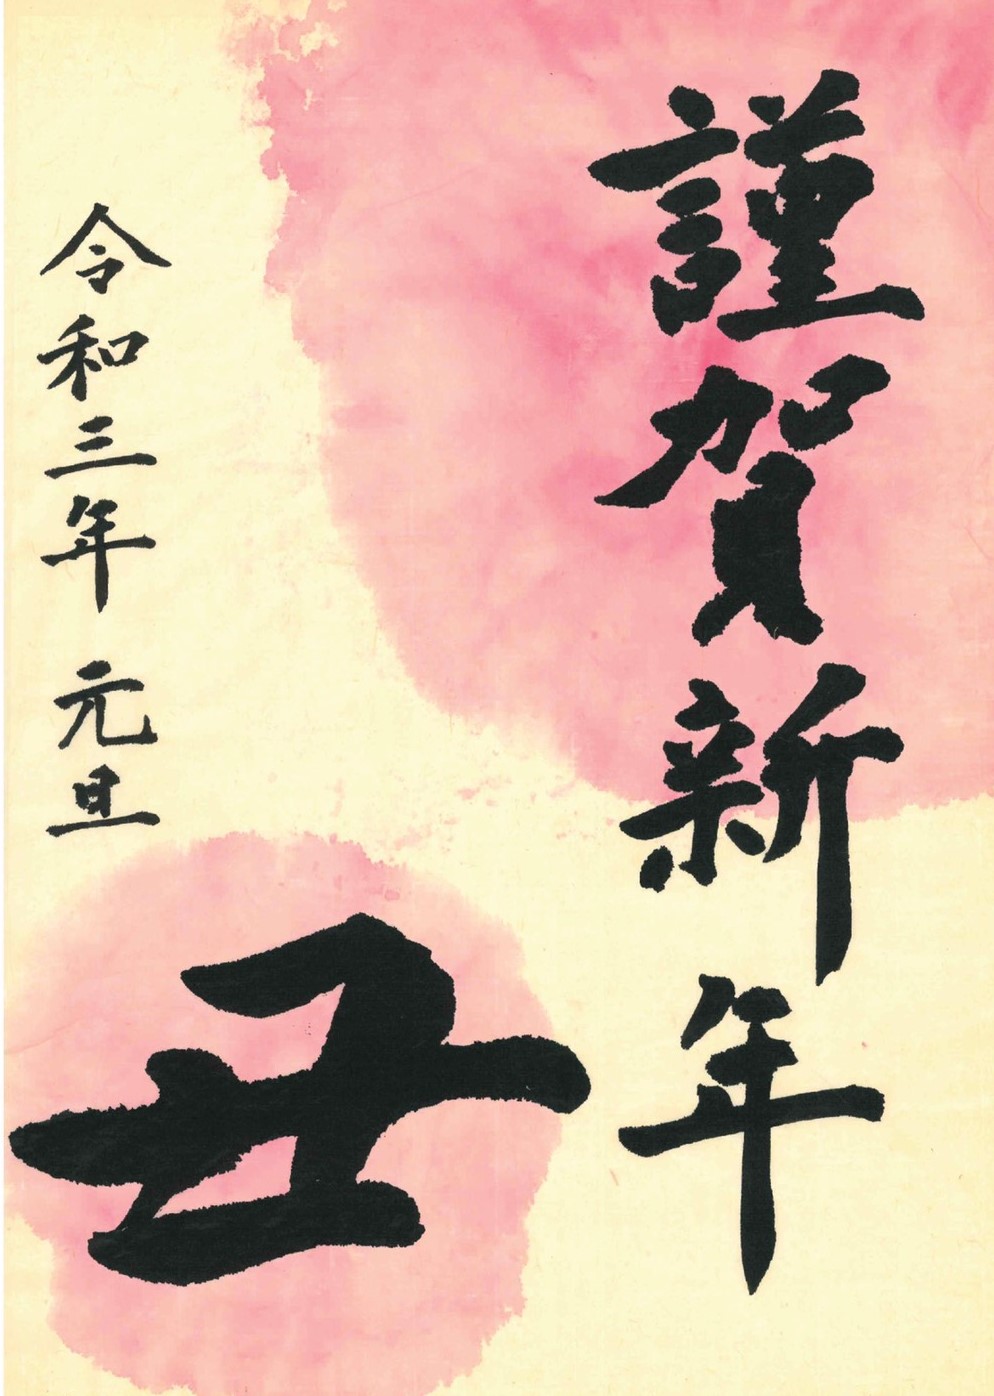 謹賀新年
丑
令和三年 元旦